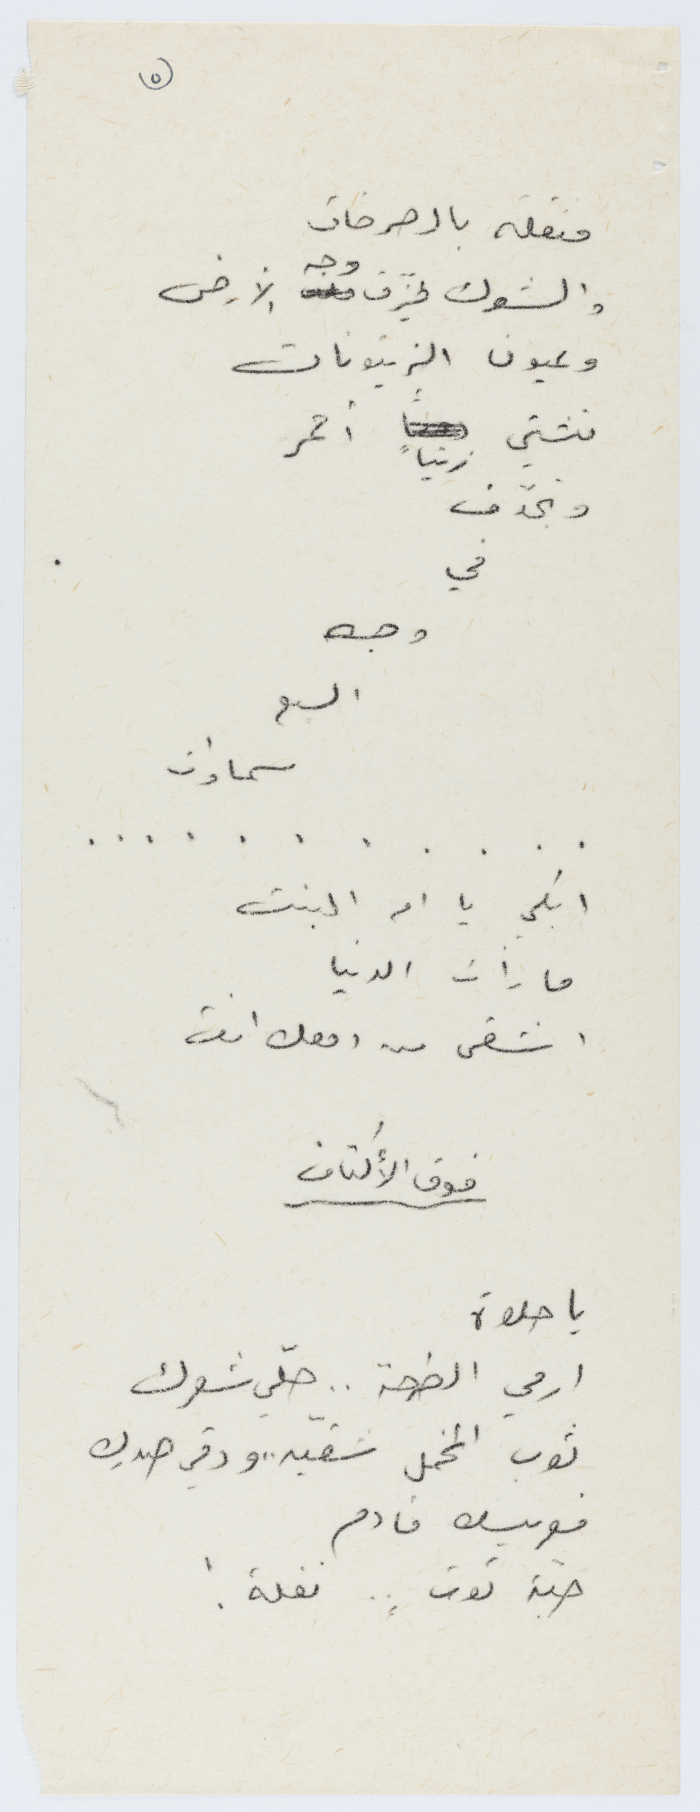 ٥
مثقلة بالصرخات
والشوك يخزّق وجه الأرض
وعيون الزيتونات
تشتي زيتياً أحمر
وتجدّف
في
وجه
السبع
سماوات
. . . . . . . . . . .
ابكي يا ام البنت
ما زأت الدنيا
اشقى من دمعك انت
فوق الأكتاف
يا حلوة
ارمي الطرحة .. حلّي شعرك
ثوب المخمل شقّيه .. ودقي صدرك
فعريسك قادم
حبّة توت .. نقلة !